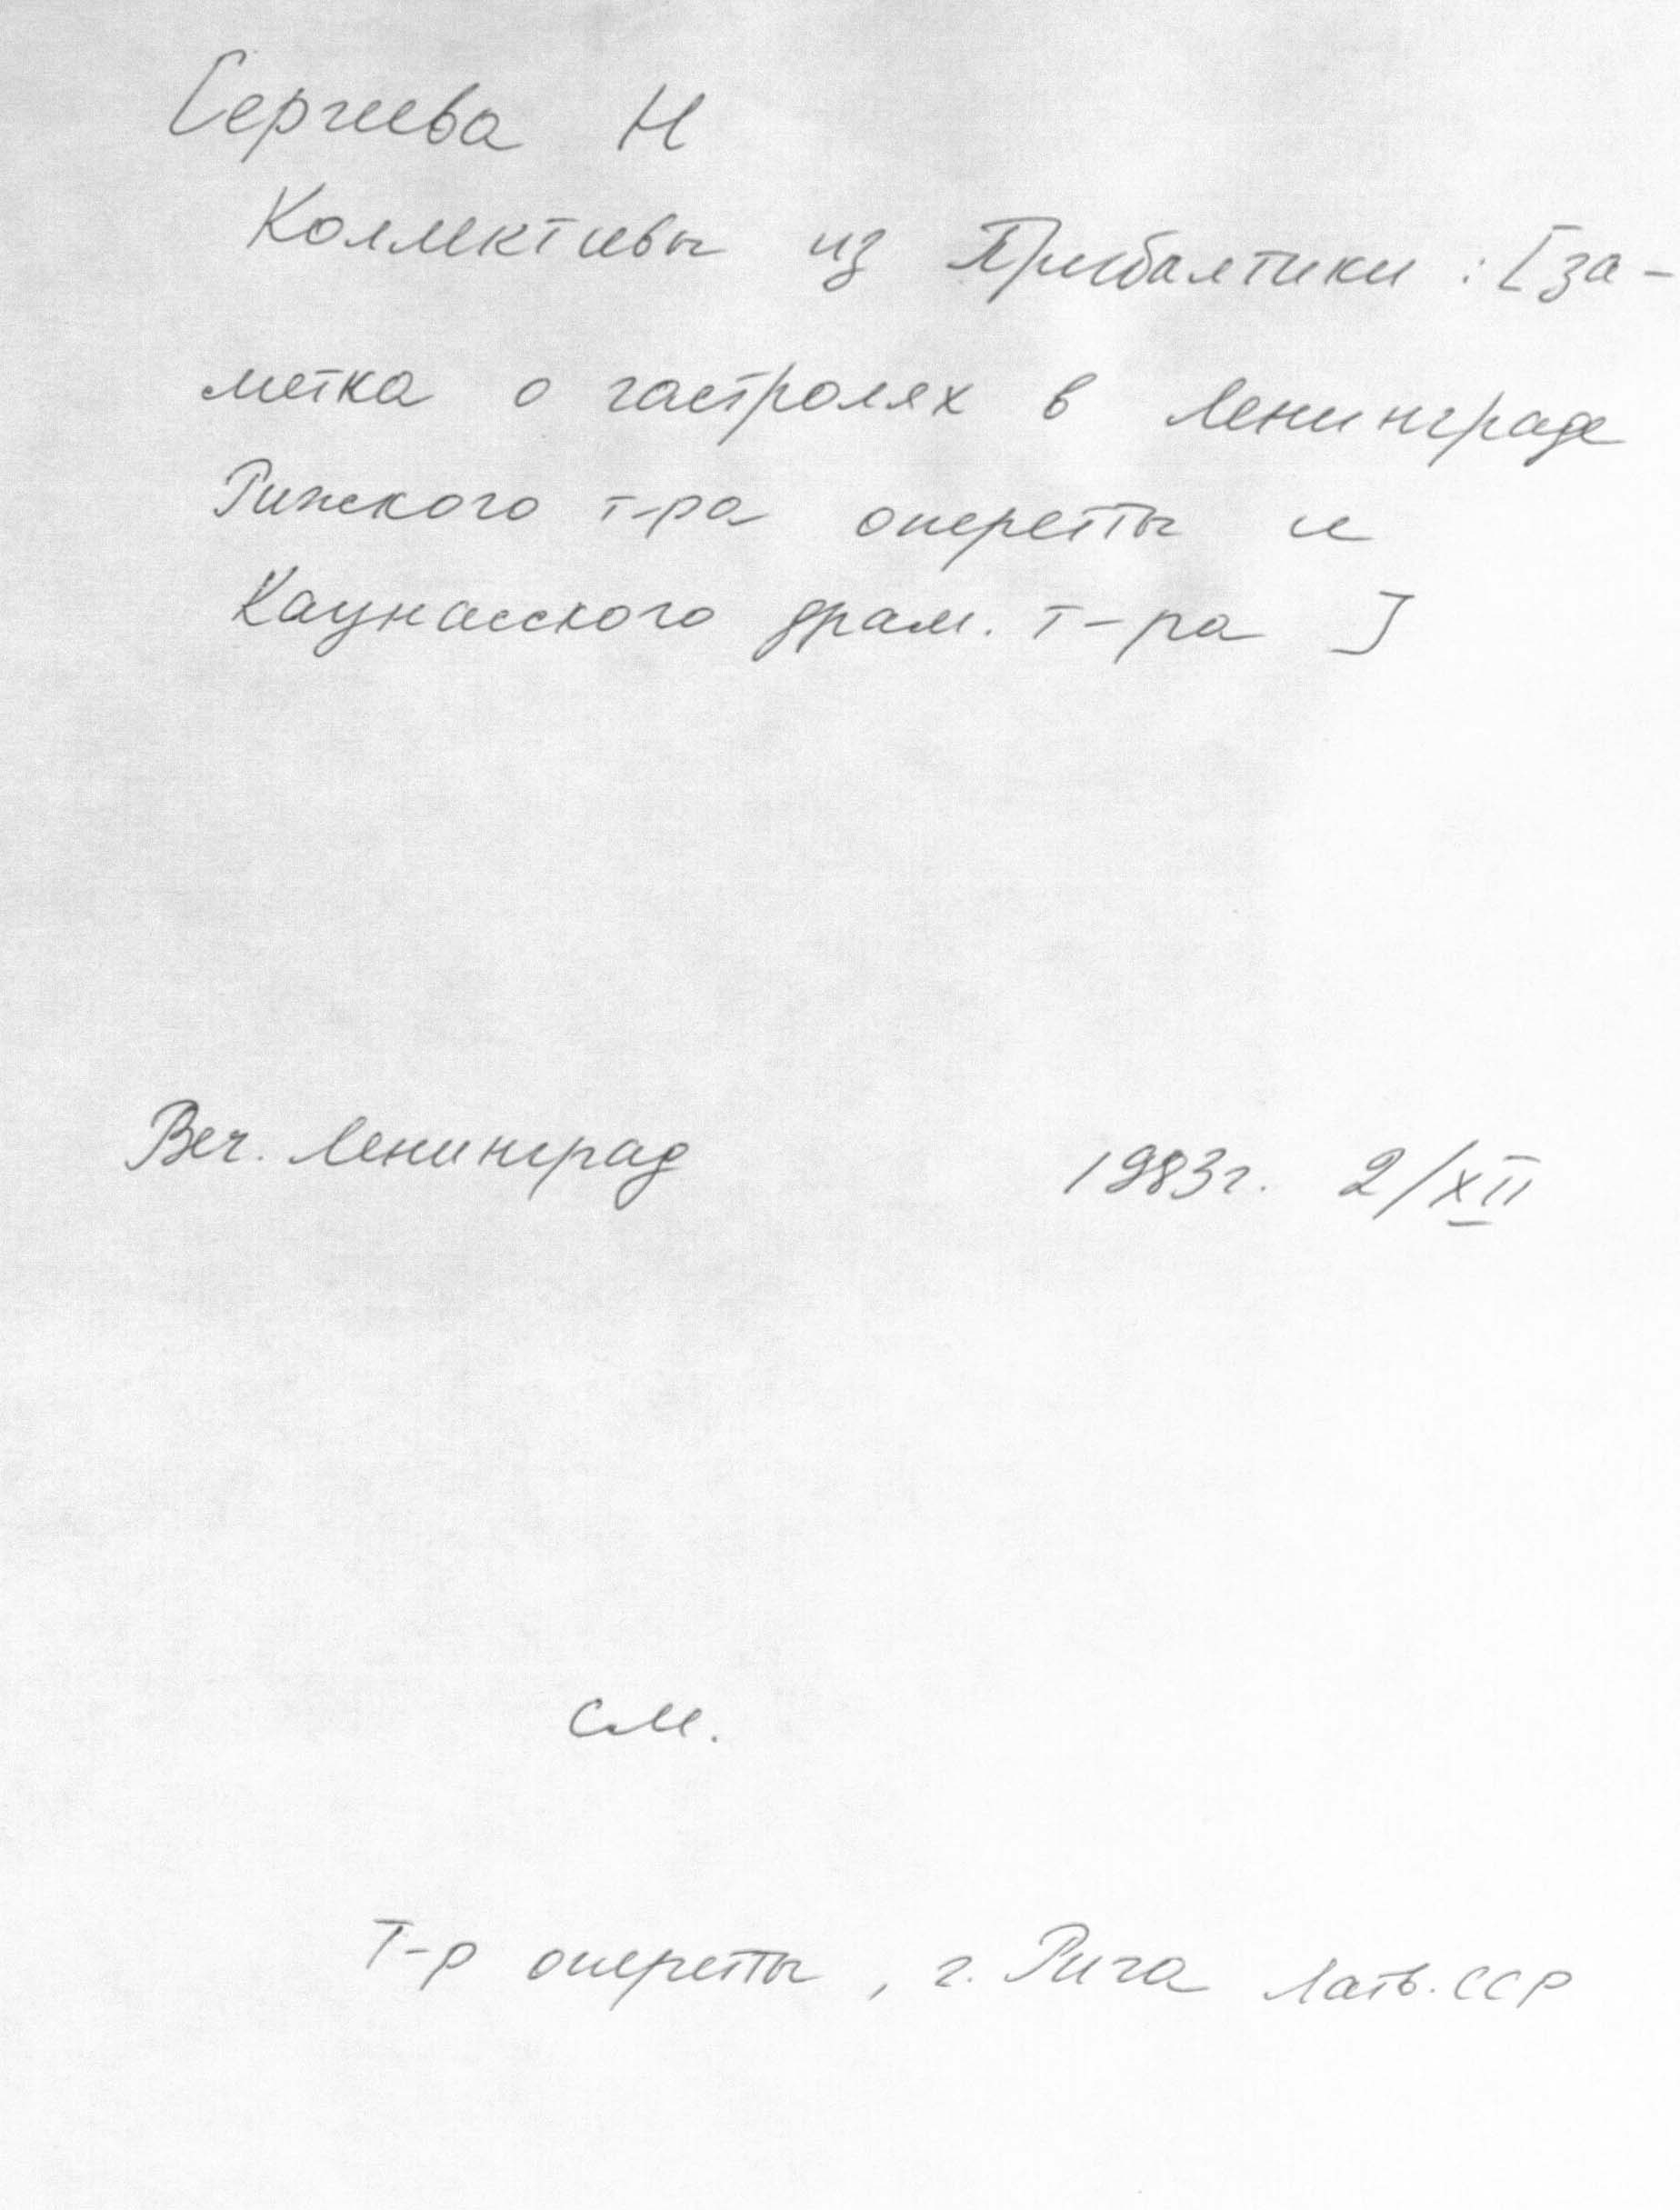 Сергеева Н
Коллективы из Прибалтики : [за-
метка о гастролях в Ленинграде
Рижского т-ра оперетты и
Каунасского драм. т-ра ]
Веч. Ленинград 1983г. 2/XII
см.
Т-р оперетты , г. Рига Латв. ССР